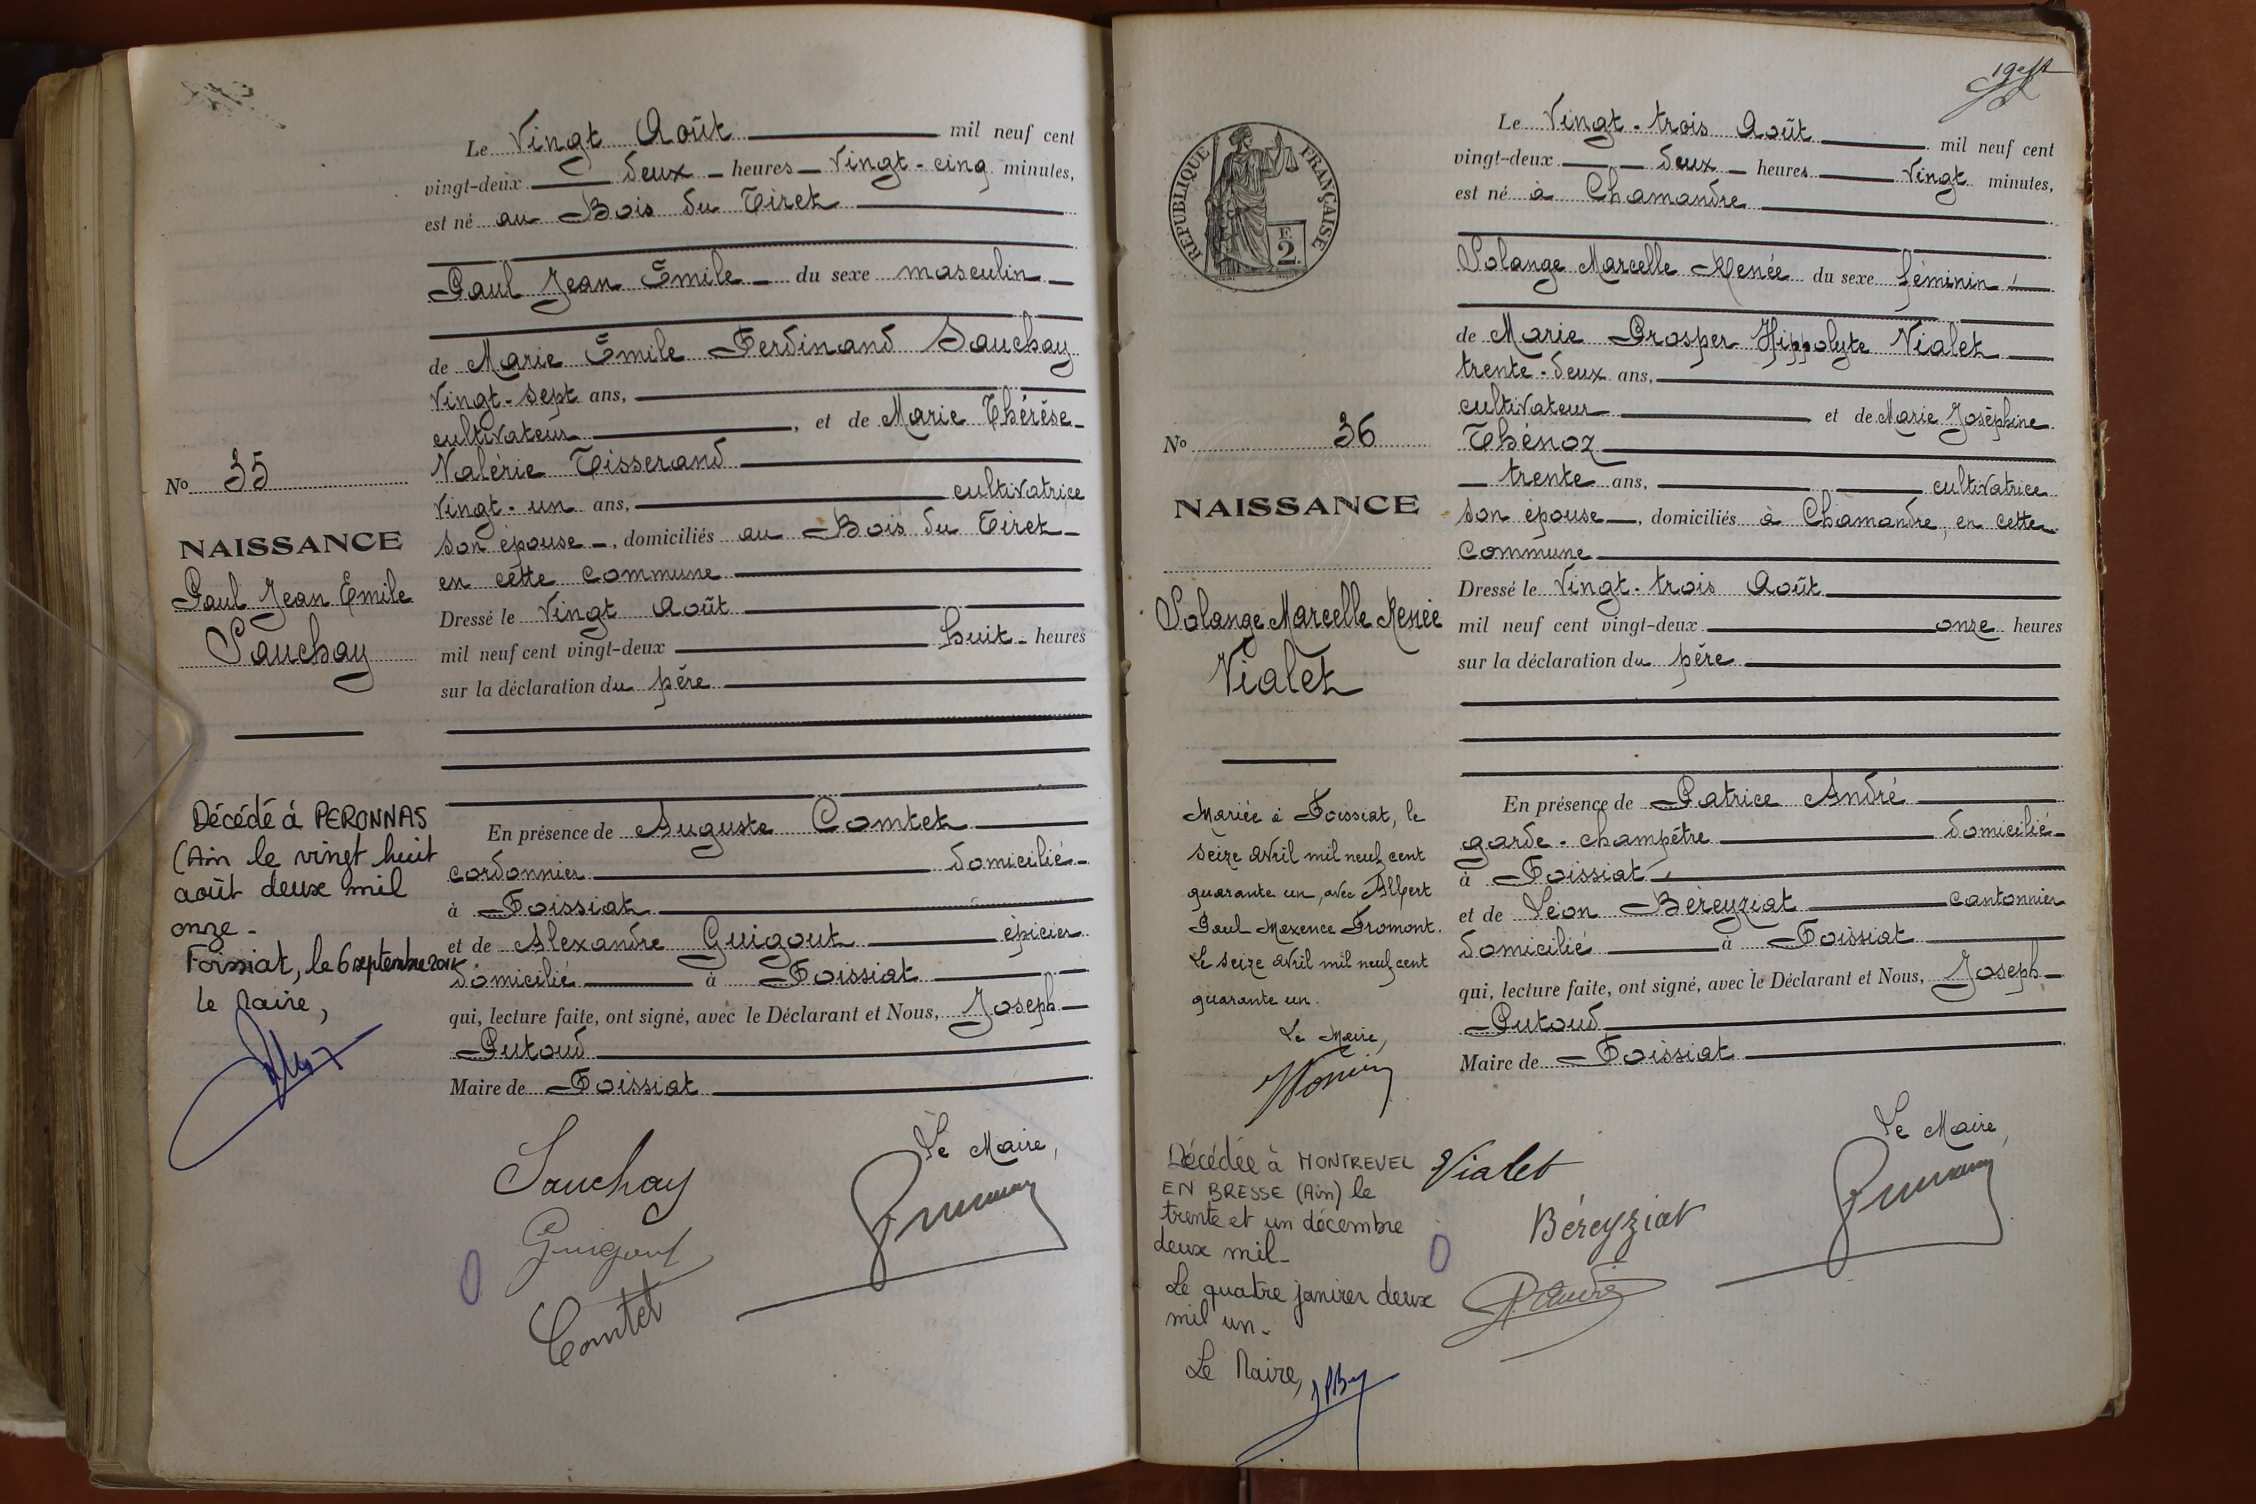 Le Vingt Août mil neuf cent
vingt-deux deux heures Vingt-cinq minutes,
est né au Bois du Tiret
Paul Jean Émile du sexe masculin
de Marie Émile Ferdinand Sauchay
Vingt-sept ans,
cultivateur, et de Marie Thérèse
Valérie Tisserand
Vingt-un ans, cultivatrice
son épouse, domiciliés au Bois du Tiret
en cette commune
Dressé le Vingt Août
mil neuf cent vingt-deux huit heures
sur la déclaration du père
En présence de Auguste Comtet
cordonnier domicilié
à Foissiat
et de Alexandre Guigout épicier
domicilié à Foissiat
qui, lecture faite, ont signé, avec le Déclarant et Nous, Joseph
Putoud
Maire de Foissiat
Le Maire,
Sauchay
Guigout
Comtet
No 35
NAISSANCE
Paul Jean Emile
Sauchay
Décédé à PERONNAS
(Ain le vingt huit
août deux mil
onze -
Foissiat, le 6 septembre 2011
Le Maire,
19
RÉPUBLIQUE FRANÇAISE
F.
2
Le Vingt-trois Août mil neuf cent
vingt-deux deux heures Vingt minutes,
est né à Chamandre
Solange Marcelle Renée du sexe féminin
de Marie Prosper Hippolyte Vialet
trente-deux ans,
cultivateur et de Marie Joséphine
Thénoz
trente ans, cultivatrice
son épouse, domiciliés à Chamandre, en cette
commune
Dressé le Vingt-trois Août
mil neuf cent vingt-deux onze heures
sur la déclaration du père
En présence de Patrice André
garde-champêtre domicilié
à Foissiat,
et de Léon Béreyziat cantonnier
domicilié à Foissiat
qui, lecture faite, ont signé, avec le Déclarant et Nous, Joseph
Putoud
Maire de Foissiat
Le Maire,
Vialet
Béreyziat
P. André
No 36
NAISSANCE
Solange Marcelle Renée
Vialet
Mariée à Foissiat, le
seize avril mil neuf cent
quarante un, avec Albert
Paul Maxence Fromont.
Le seize avril mil neuf cent
quarante un.
Le Maire,
Décédée à MONTREVEL
EN BRESSE (Ain) le
trente et un décembre
deux mil -
Le quatre janvier deux
mil un -
Le Maire,